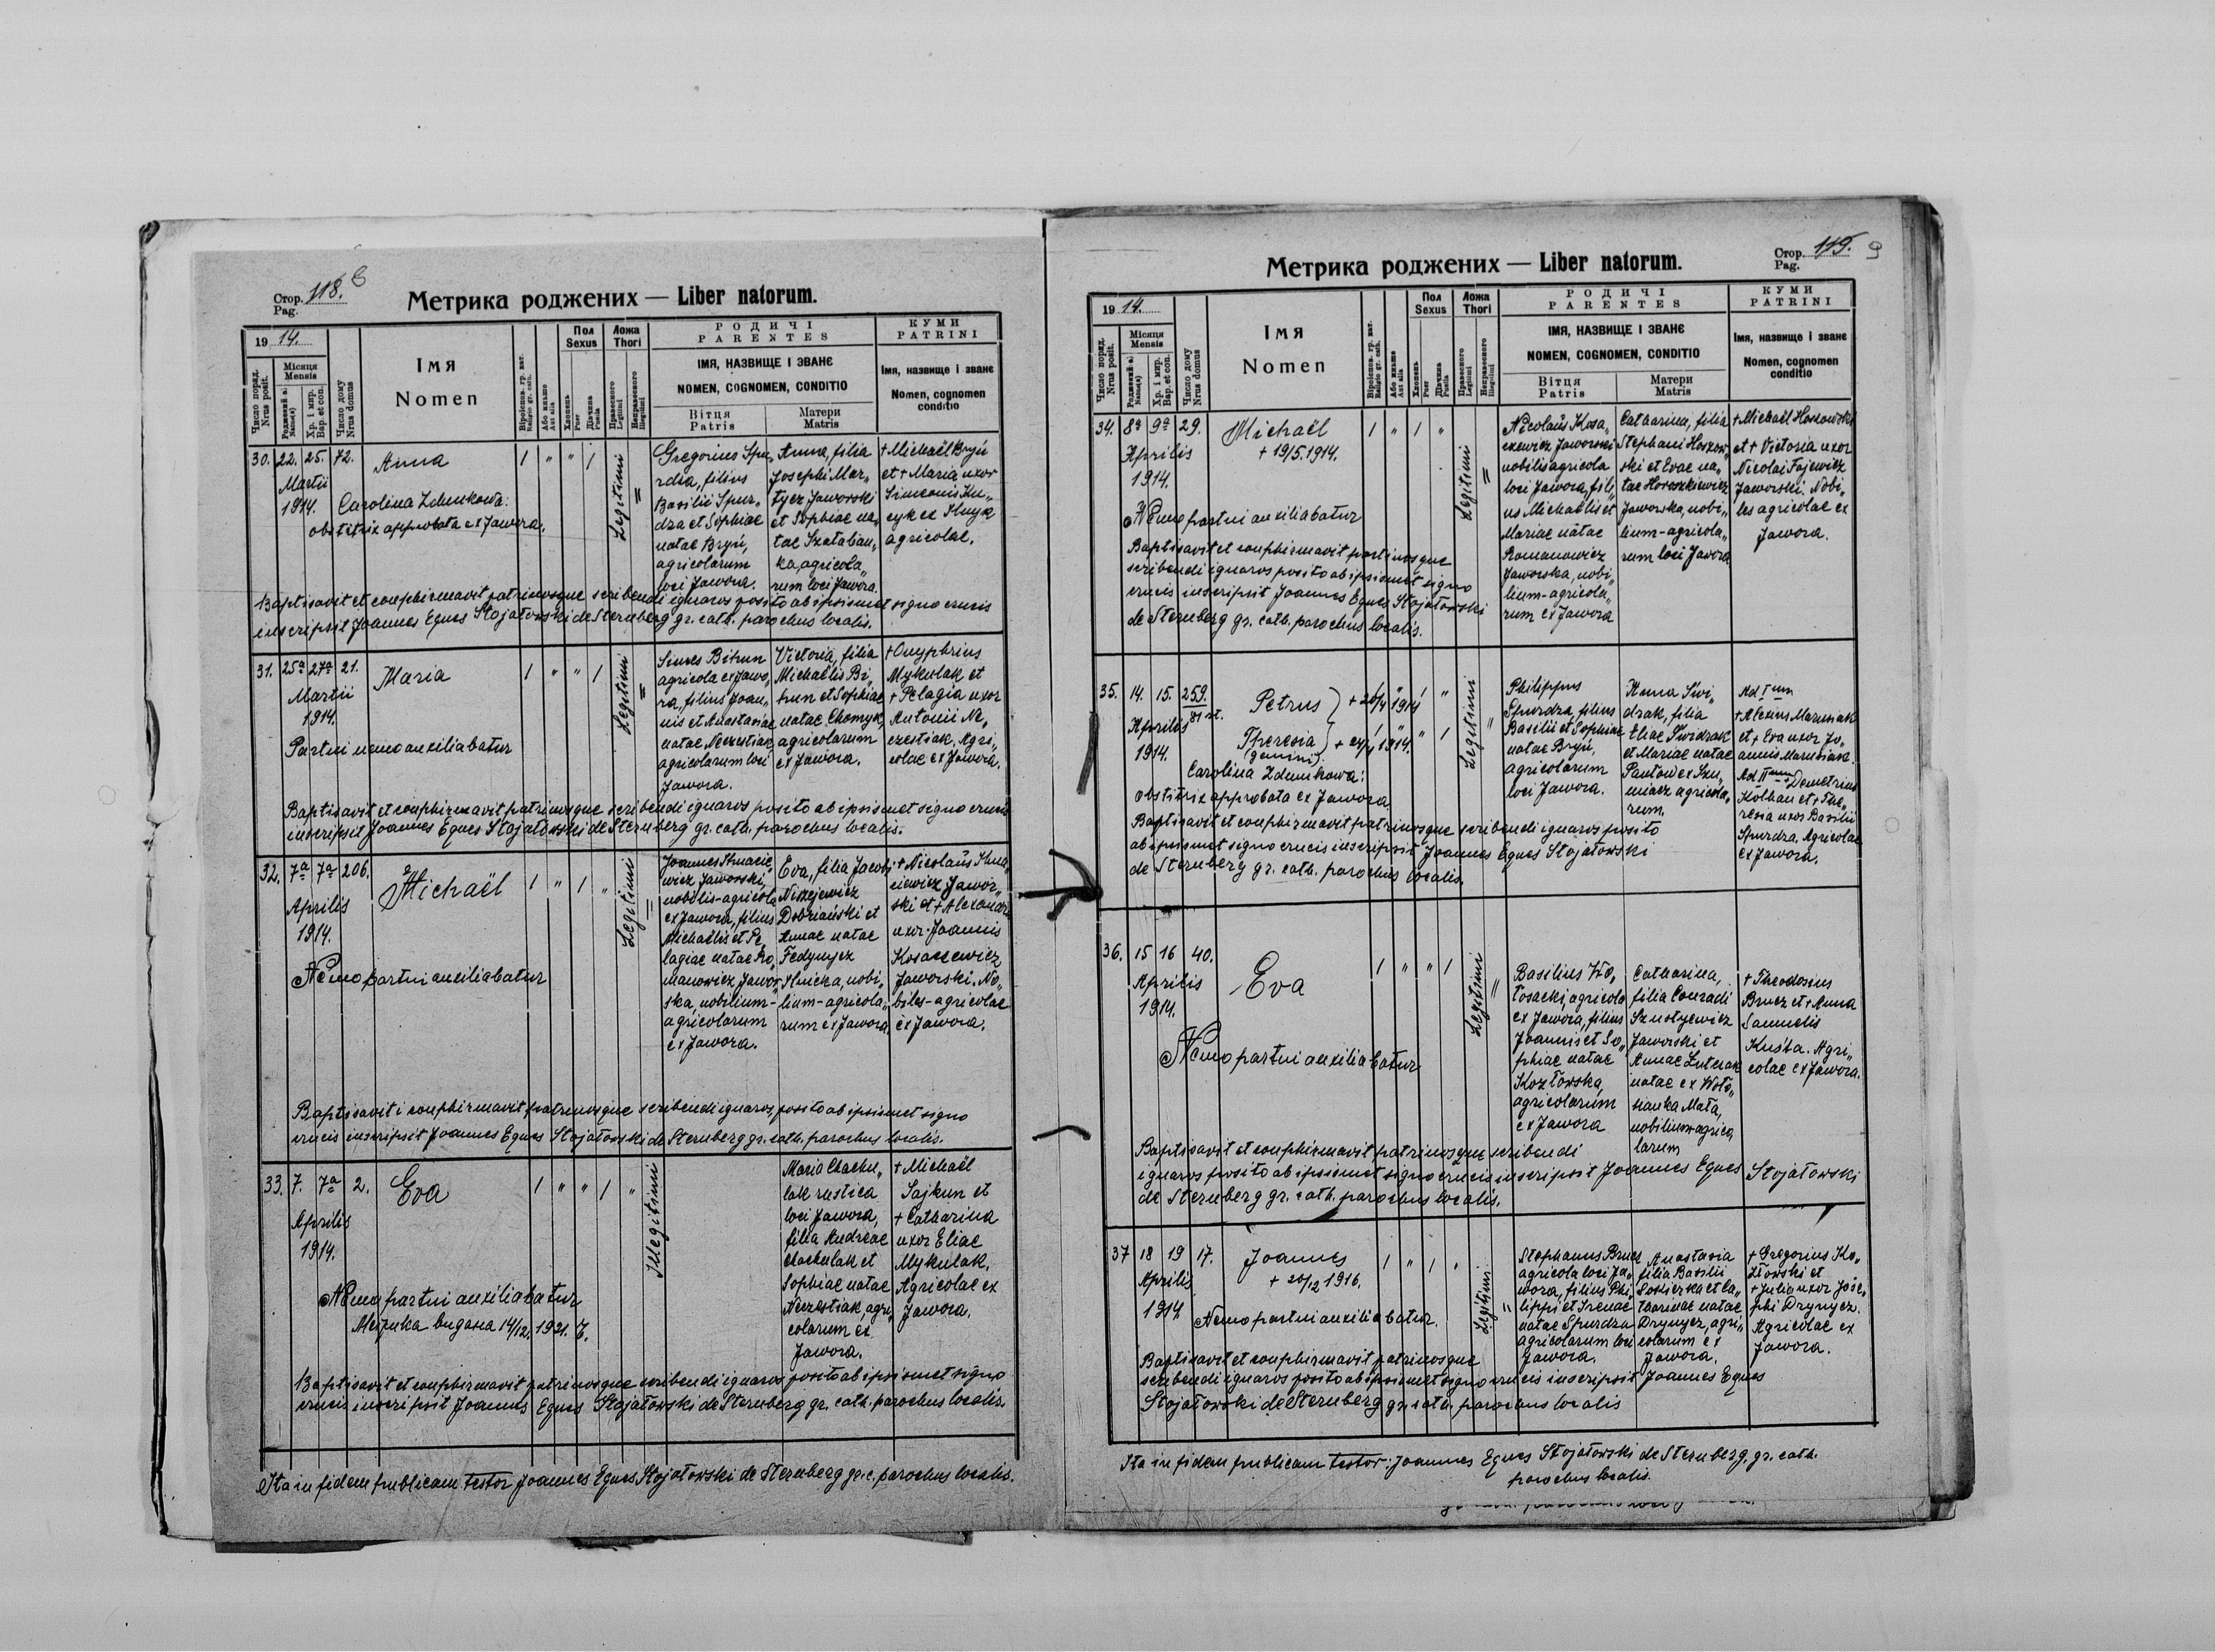 Стор. 118.
Pag.
Метрика роджених — Liber natorum.
1914.
Число поряд.
Nrus posit.
Місяця
Mensis
Хр. і мир.
Bap. et con.
Число дому
Nrus domus
Імя
Nomen
Або иньше
Aut alia
Пол
Sexus
Хлопець
Puer
Дівчина
Puella
Ложа
Thori
Правесного
Legitimi
Неправесного
Illegitimi
РОДИЧІ
PARENTES
ІМЯ, НАЗВИЩЕ І ЗВАНЄ
NOMEN, COGNOMEN, CONDITIO
Вітця
Patris
Матери
Matris
КУМИ
PATRINI
Імя, назвище і званє
Nomen, cognomen
conditio
30. 22. 25. 72.
Martii
1914.
Anna
Carolina Zdunkowa:
obstetrix approbata ex Jawora.
Legitimi
Gregorius Spu„
rdza, filius
Basilii Spur„
dza et Sophiae
natae Bryń,
agricolarum
loci Jawora.
Anna, filia
Josephi Mar„
tycz Jaworski
et Sophiae na„
tae Szataban„
ka, agricola„
rum loci Jawora.
+ Michaël Bryń
et + Maria uxor
Simeonis
agricolae.
Baptisavit et conphirmavit patrinosque scribendi ignaros posito ab ipsismet signo crucis
inscripsit Joannes Eques Stojałowski de Sternberg gr. cath. parochus localis.
31. 25ª 27ª 21.
Martii
1914.
Maria
Partui nemo auxiliabatur
Legitimi
Simes Bihun
agricola ex Jawo„
ra, filius Joan„
nis et Anastasiae
natae Neczestiak
agricolarum loci
Jawora.
Victoria, filia
Michaëlis Bi„
hun et Sophiae
natae Chomyk,
agricolarum
ex Jawora.
+ Onyphrius
Mykulak et
+ Pelagia uxor
Antonii Ne„
czestiak, Agri„
colae ex Jawora.
Baptisavit et conphirmavit patrinosque scribendi ignaros posito ab ipsismet signo crucis
inscripsit Joannes Eques Stojałowski de Sternberg gr. cath. parochus localis.
32. 7ª 7ª 206.
Aprilis
1914.
Michaël
Nemo partui auxiliabatur
Legitimi
Joannes
wicz Jaworski,
nobilis-agricola
ex Jawora, filius
Michaëlis et Pe„
lagiae natae Ro„
manowicz Jawor„
ska, nobilium-
agricolarum
ex Jawora.
Eva, filia Jacobi
Niżejewicz
Dobriański et
Annae natae
Fedynycz
Ilnicka, nobi„
lium-agricola„
rum ex Jawora.
+ Nicolaüs
Jawor„
ski et + Alexandra
uxor Joannis
Kosacewicz
Jaworski. No„
biles-agricolae
ex Jawora.
Baptisavit i conphirmavit patrinosque scribendi ignaros, posito ab ipsismet signo
crucis inscripsit Joannes Eques Stojałowski de Sternberg gr. cath. parochus localis.
33. 7. 7ª 2.
Aprilis
1914.
Eva
Nemo partui auxiliabatur
Метрика видана 14/12. 1921.
Illegitimi
Maria Chachu„
lak rustica
loci Jawora,
filia Andreae
Chachulak et
Sophiae natae
Neczestiak, agri„
colarum ex
Jawora.
+ Michaël
Sajkun et
+ Catharina
uxor Eliae
Mykulak.
Agricolae ex
Jawora.
Baptisavit et conphirmavit patrinosque scribendi ignaros posito ab ipsismet signo
crucis inscripsit Joannes Eques Stojałowski de Sternberg gr. cath. parochus localis.
Ita in fidem publicam testor Joannes Eques Stojałowski de Sternberg gr. c. parochus localis.
Стор. 119. 9
Pag.
Метрика роджених — Liber natorum.
1914.
Число поряд.
Nrus posit.
Місяця
Mensis
Хр. і мир.
Bap. et con.
Число дому
Nrus domus
Імя
Nomen
Або иньше
Aut alia
Пол
Sexus
Хлопець
Puer
Дівчина
Puella
Ложа
Thori
Правесного
Legitimi
Неправесного
Illegitimi
РОДИЧІ
PARENTES
ІМЯ, НАЗВИЩЕ І ЗВАНЄ
NOMEN, COGNOMEN, CONDITIO
Вітця
Patris
Матери
Matris
КУМИ
PATRINI
Імя, назвище і званє
Nomen, cognomen
conditio
34. 8ª 9ª 29.
Aprilis
1914.
Michaël
+ 19/5. 1914.
Nemo partui auxiliabatur
Legitimi
Nicolaüs Kosa„
cewicz Jaworski
nobilis agricola
loci Jawora, fili„
us Michaëlis et
Mariae natae
Romanowicz
Jaworska, nobi„
lium-agricola„
rum ex Jawora
Catharina, filia
Stephani Hoszow„
ski et Evae na„
tae Horoszkiewicz
Jaworska, nobi„
lium-agricola„
rum loci Jawora
+ Michaël Hoszowski
et + Victoria uxor
Nicolai Fajewicz
Jaworski. Nobi„
les agricolae ex
Jawora.
Baptisavit et conphirmavit patrinosque
scribendi ignaros posito ab ipsismet signo
crucis inscripsit Joannes Eques Stojałowski
de Sternberg gr. cath. parochus localis.
35. 14. 15. 259.
Aprilis
1914.
Petrus } + 20/4 1914
Theresia } + 24/4 1914.
(gemini).
Carolina Zdunkowa:
obstitrix approbata ex Jawora.
Legitimi
Philippus
Spurdza, filius
Basilii et Sophiae
natae Bryń,
agricolarum
loci Jawora.
Anna Świ„
drak, filia
Eliae Świdrak
et Mariae natae
Pantow ex Szu„
miacz agricola„
rum.
Ad I um
+ Alexius Marusiak
et + Eva uxor Jo„
annis Marusiak.
Ad II um + Demetrius
Kolhan et + The„
resia uxor Basilii
Spurdza. Agricolae
ex Jawora.
Baptisavit et conphirmavit patrinosque scribendi ignaros posito
ab ipsismet signo crucis inscripsit Joannes Eques Stojałowski
de Sternberg gr. cath. parochus localis.
36. 15 16 40.
Aprilis
1914.
Eva
Nemo partui auxiliabatur
Legitimi
Basilius Wo„
łosacki, agricola
ex Jawora, filius
Joannis et So„
phiae natae
Kozłowska,
agricolarum
ex Jawora
Catharina,
filia Conradi
Szustyewicz
Jaworski et
Annae Lutniak
natae ex Woło„
sianka Mała,
nobilium agrico„
larum
+ Theodosius
Brucz et + Anna
Samuelis
Kuśka. Agri„
colae ex Jawora.
Baptisavit et conphirmavit patrinosque scribendi
ignaros posito ab ipsismet signo crucis inscripsit Joannes Eques Stojałowski
de Sternberg gr. cath. parochus localis.
37 18 19 17.
Aprilis
1914
Joannes
+ 20/12 1916.
Nemo partui auxiliabatur.
Legitimi
Stephanus Brucz
agricola loci Ja„
wora, filius Phi„
lippi et Irenae
natae Spurdza
agricolarum loci
Jawora.
Anastasia
filia Basilii
et Ca„
tharinae natae
Drynycz, agri„
colarum ex
Jawora.
+ Gregorius Ko„
złowski et
+ Julia uxor Jose„
phi Drynycz.
Agricolae ex
Jawora.
Baptisavit et conphirmavit patrinosque
scribendi ignaros posito ab ipsismet signo crucis inscripsit Joannes Eques
Stojałowski de Sternberg gr. cath. parochus localis
Ita in fidem publicam testor: Joannes Eques Stojałowski de Sternberg, gr. cath.
parochus localis.